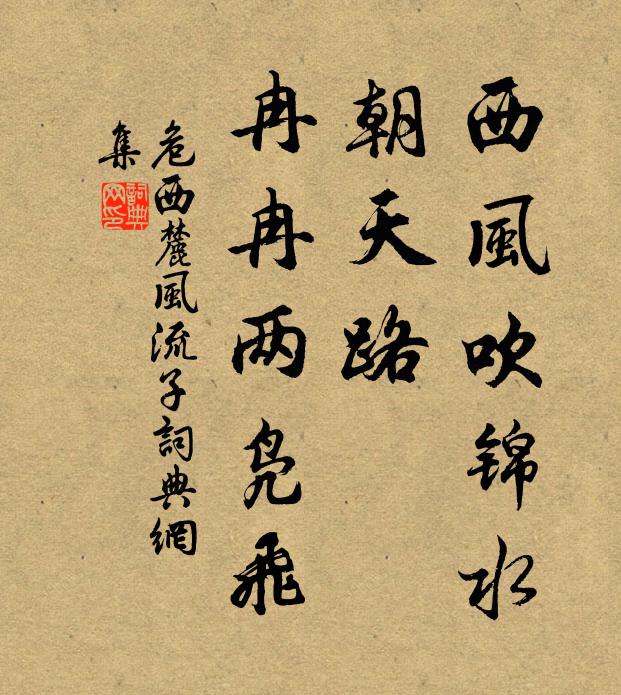 西風吹锦水
朝天路
冉冉两凫飛
危西麓風流子詞典網
集
詞典
网印